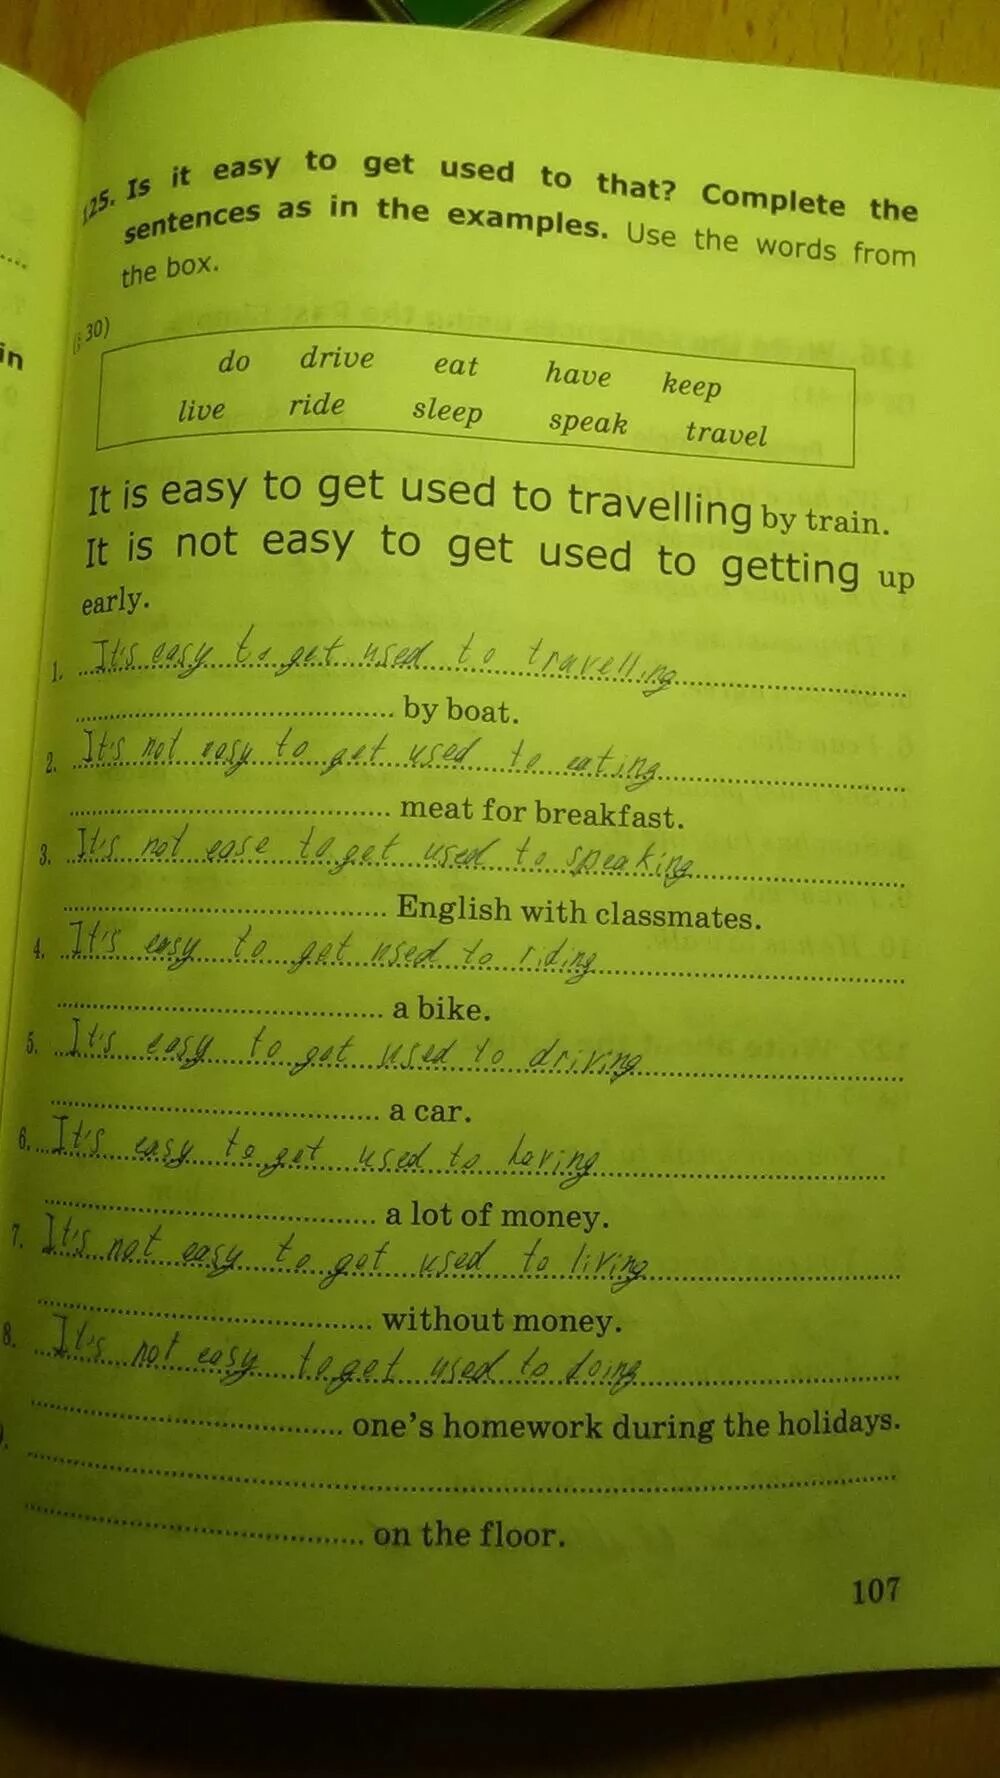 125. Is it easy to get used to that? Complete the
sentences as in the examples. Use the words from
the box.
30)
do drive eat have keep
live ride sleep speak travel
It is easy to get used to travelling by train.
It is not easy to get used to getting up
early.
1. It's easy to get used to travelling
by boat.
2. It's not easy to get used to eating
meat for breakfast.
3. It's not ease to get used to speaking
English with classmates.
4. It's easy to get used to riding
a bike.
5. It's easy to get used to driving
a car.
6. It's easy to get used to having
a lot of money.
7. It's not easy to get used to living
without money.
8. It's not easy to get used to doing
one's homework during the holidays.
on the floor.
107
in